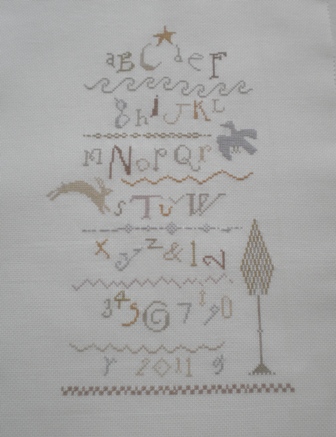 aBC deF
ghiJKL
mNoPQr
sTuVW
xyz&12
345678 90
r 2011 g